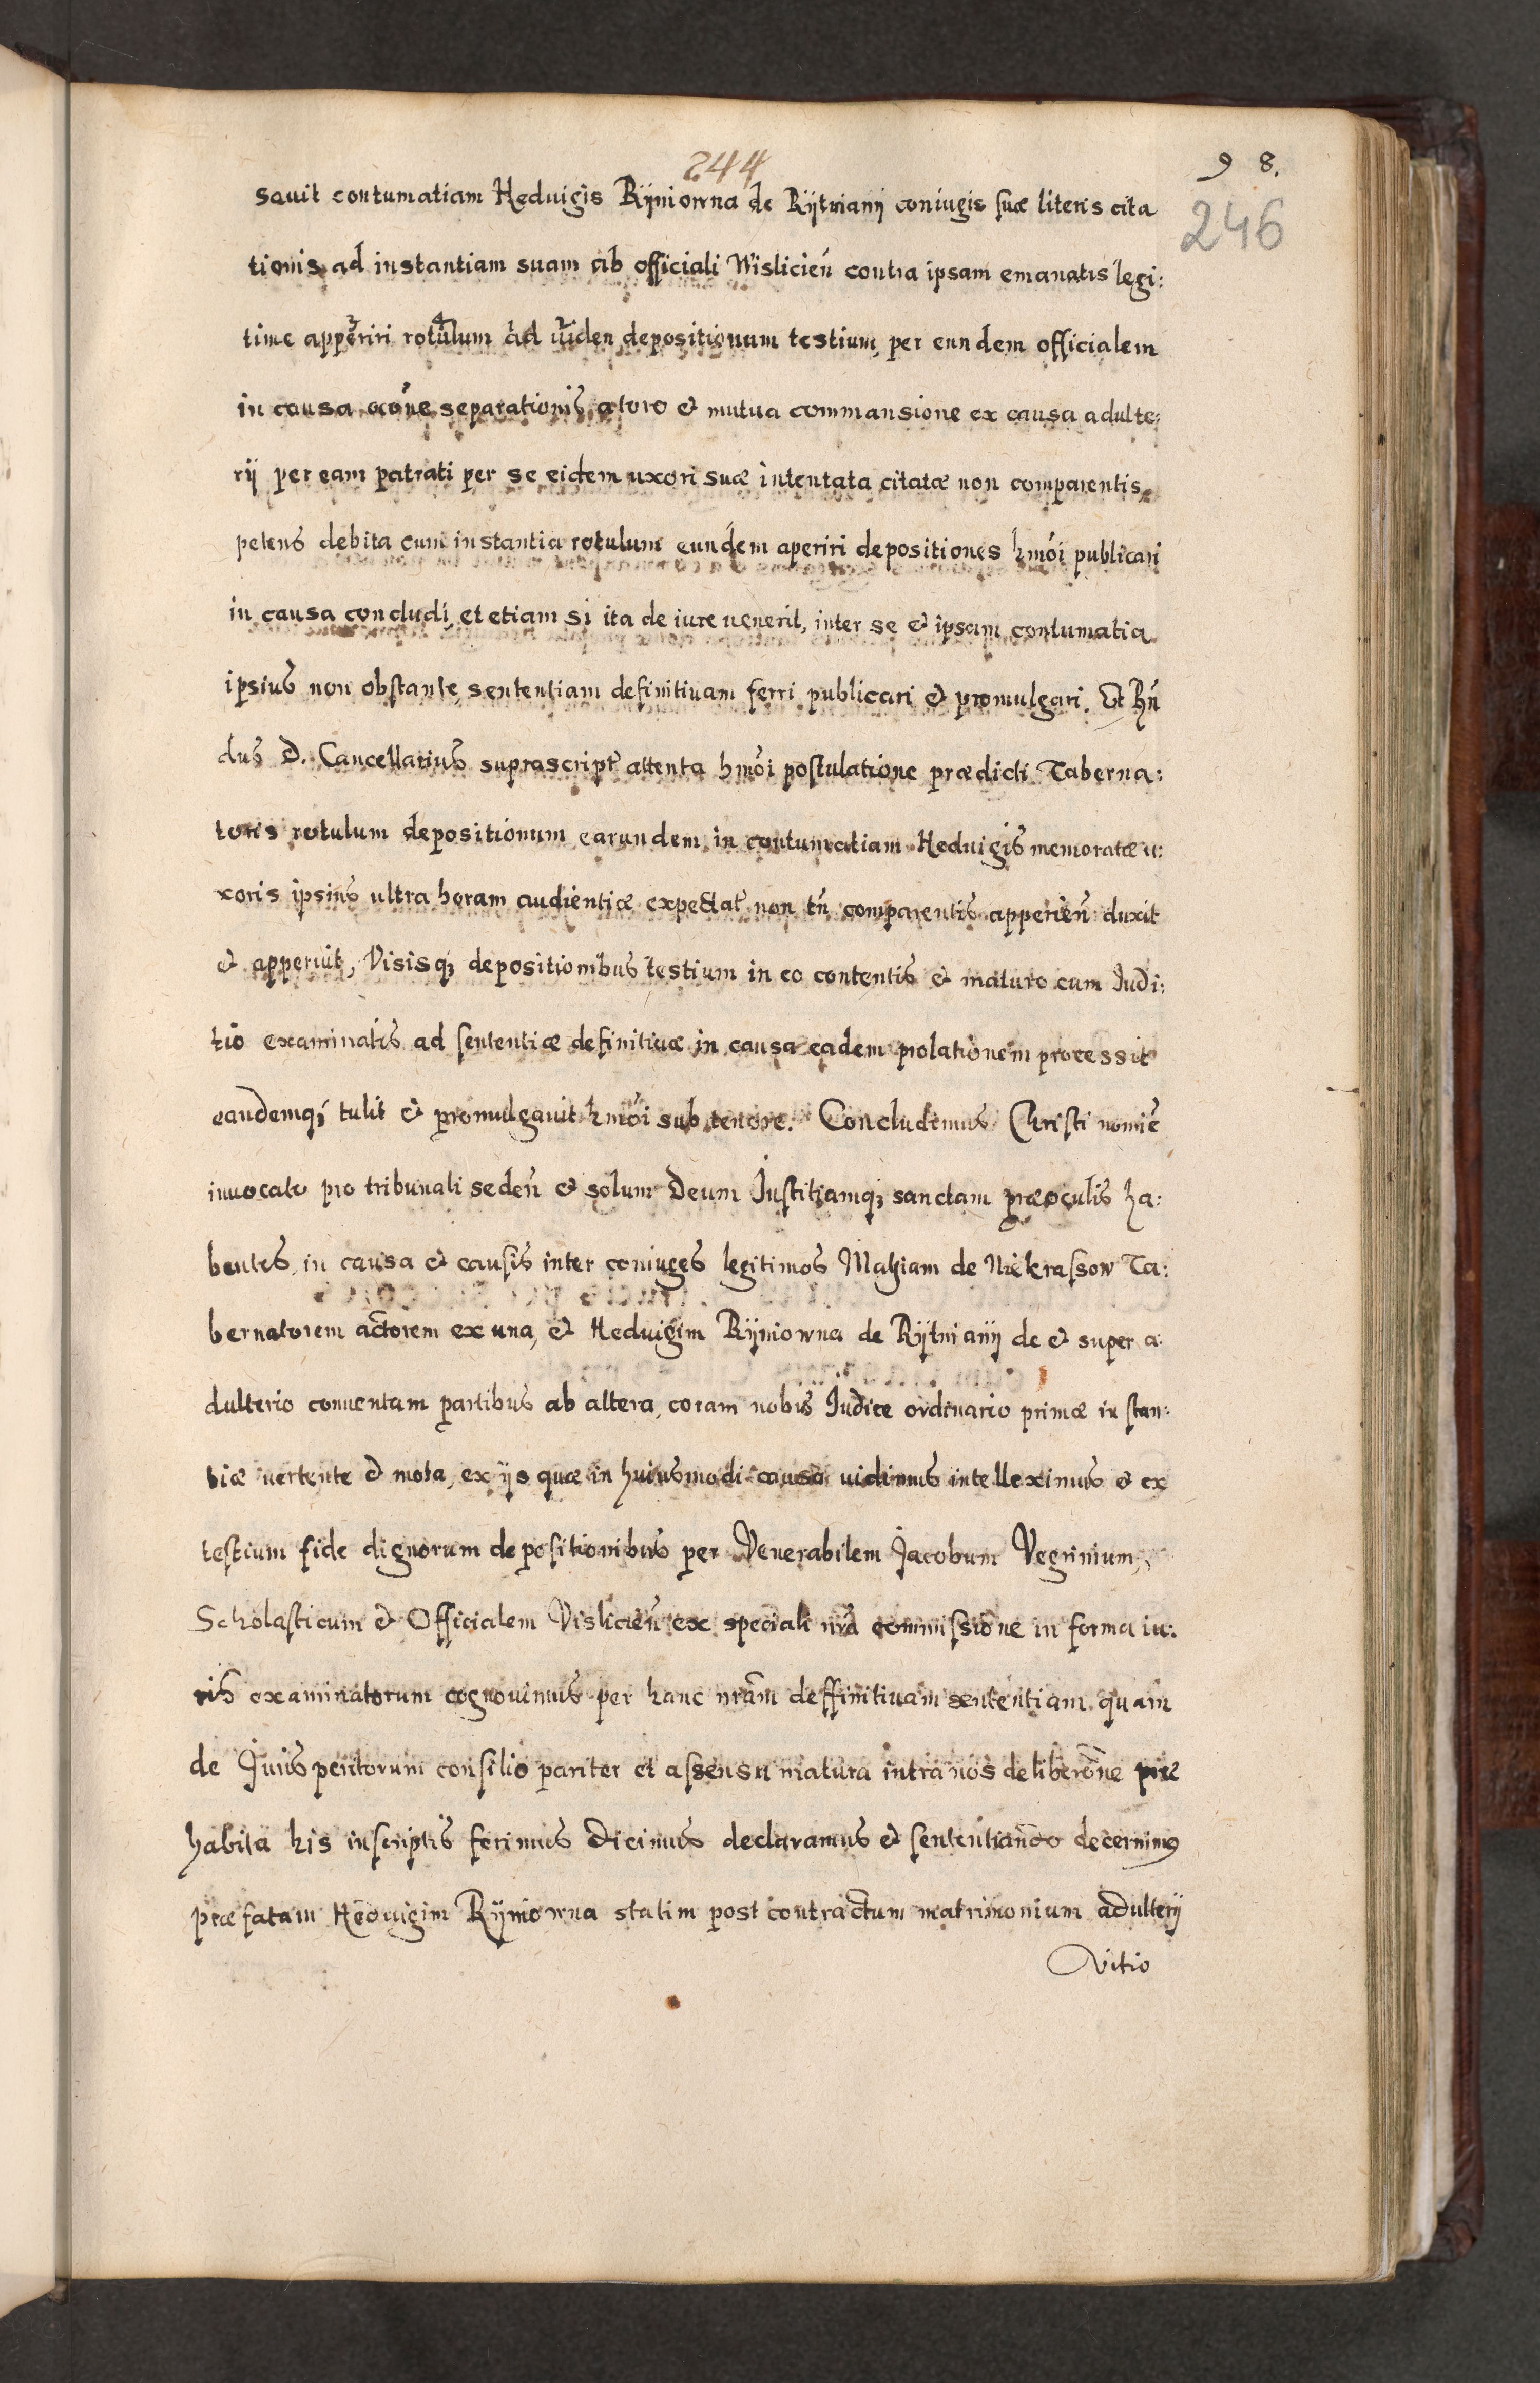 244
9 8.
246
sauit contumatiam Heduigis Rÿniowna de Rÿtwianÿ coniugis suæ literis cita
tionis ad instantiam suam ab officiali Wislicień contra ipsam emanatis legi:
time apperiri rotulum ad depositionum testium, per eundem officialem
in causa separationis a toro et mutua commansione ex causa adulte:
rij per eam patrati per se eidem uxori suæ intentata citatæ non comparentis,
petens debita cum instantia rotulum eundem aperiri depositiones hmôi publicari
in causa concludi, et etiam si ita de iure uenerit, inter se et ipsam contumatia
ipsius non obstante sententiam definitiuam ferri publicari et promulgari. Et Rń
dus D. Cancellarius suprascript attenta hmôi postulatione prædicti Taberna:
toris rotulum depositionum earundem in contumatiam Heduigis memoratæ u:
xoris ipsius ultra horam audientiæ expectat non tñ comparentis apperień duxit
et apperuit, Visisq; depositionibus testium in eo contentis et maturo cum Iudi:
tio examinatis ad sententiæ definitiuæ in causa eadem prolationem processit
eandemq; tulit et promulgauit hmôi sub tenore. Concludimus Christi nomiē
inuocato pro tribunali sedeñ et solum Deum Iustitiamq; sanctam præoculis ha:
bentes, in causa et causis inter coniuges legitimos Mathiam de Niekrassow Ta:
bernatorem actorem ex una, et Heduigim Rÿniowna de Rÿtwianÿ de et super a:
dulterio conuentam partibus ab altera, coram nobis Iudice ordinario primæ instan:
tiæ uertente et mota, ex ijs quæ in huiusmodi causa uidimus intelleximus et ex
testium fide dignorum depositionibus per Venerabilem Jacobum Vegrinium,
Scholasticum et Officialem Vislicień ex speciali nrã commissione in forma iu:
ris examinatorum cognouimus per hanc nrãm deffinitiuam sententiam quam
de Iurisperitorum consilio pariter et assensu matura intra nos deliberoñe præ
habita his inscriptis ferimus Dicimus declaramus et sententiando decernimꝰ
præfatam Heduigim Rÿniowna statim post contractum matrimonium adulterij
Vitio